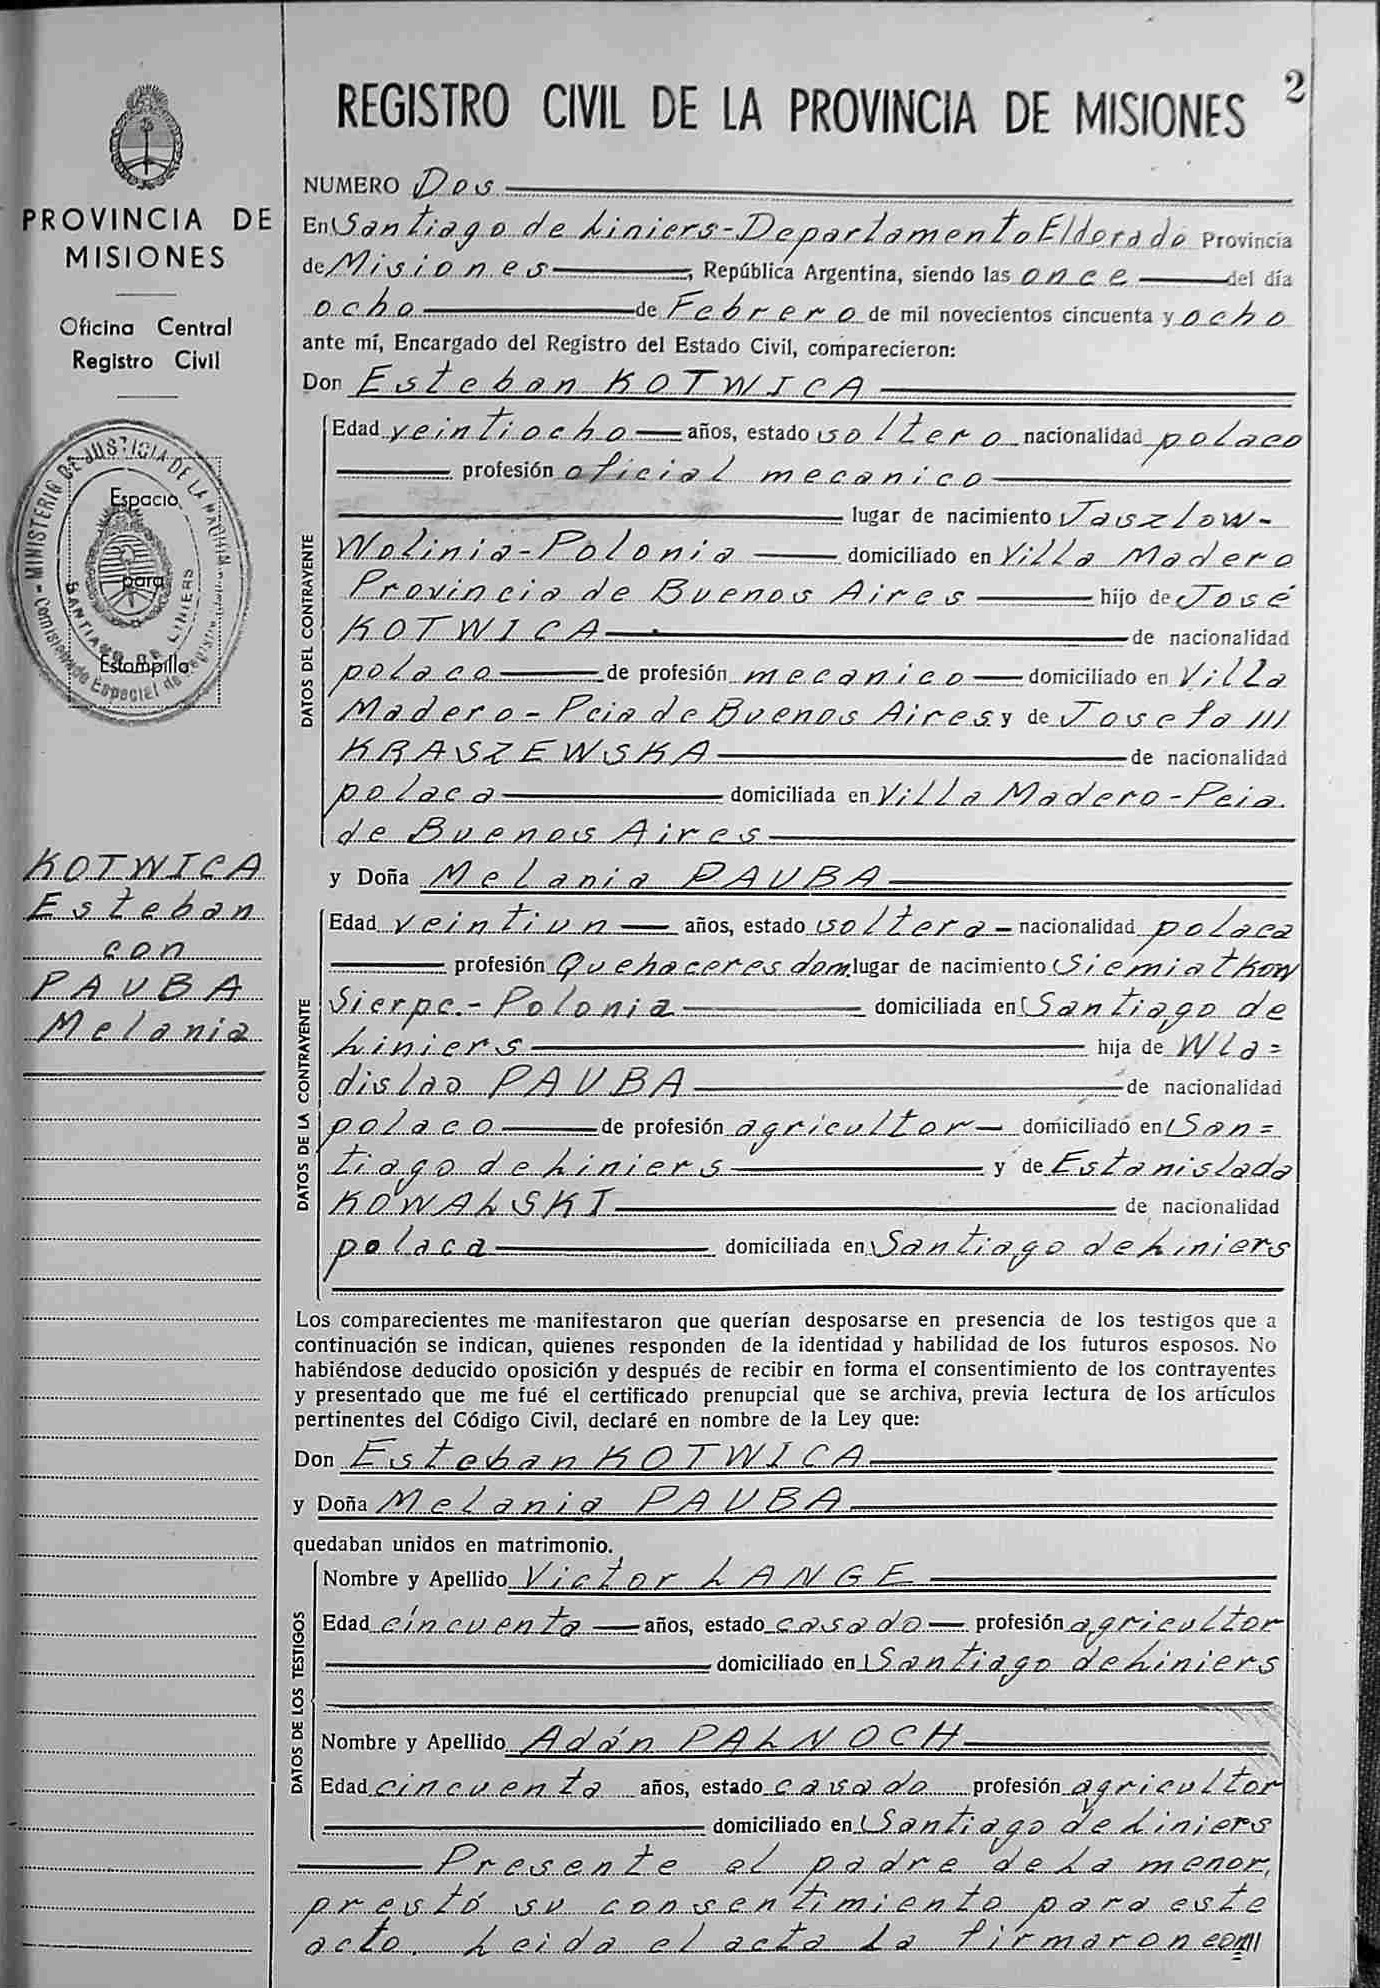 2
REGISTRO CIVIL DE LA PROVINCIA DE MISIONES
PROVINCIA DE
MISIONES
Oficina Central
Registro Civil
MINISTERIO DE JUSTICIA DE LA NACION
SANTIAGO DE LINIERS
Espacio
para
Estampilla
KOTWICA
Esteban
con
PAUBA
Melania
NUMERO Dos
En Santiago de Liniers-Departamento Eldorado Provincia
de Misiones, República Argentina, siendo las once del día
ocho de Febrero de mil novecientos cincuenta y ocho
ante mí, Encargado del Registro del Estado Civil, comparecieron:
Don Esteban KOTWICA
DATOS DEL CONTRAYENTE
Edad veintiocho años, estado soltero nacionalidad polaco
profesión oficial mecanico
lugar de nacimiento Jaszlow-
Wolinia-Polonia domiciliado en Villa Madero
Provincia de Buenos Aires hijo de José
KOTWICA de nacionalidad
polaco de profesión mecanico domiciliado en Villa
Madero-Pcia de Buenos Aires y de Josefa ///
KRASZEWSKA de nacionalidad
polaca domiciliada en Villa Madero-Pcia.
de Buenos Aires
y Doña Melania PAUBA
DATOS DE LA CONTRAYENTE
Edad veintiun años, estado soltera nacionalidad polaca
profesión Quehaceres dom. lugar de nacimiento Siemiatkow
Sierpc.-Polonia domiciliada en Santiago de
Liniers hija de Wla=
dislao PAUBA de nacionalidad
polaco de profesión agricultor domiciliado en San=
tiago de Liniers y de Estanislada
KOWALSKI de nacionalidad
polaca domiciliada en Santiago de Liniers
Los comparecientes me manifestaron que querían desposarse en presencia de los testigos que a
continuación se indican, quienes responden de la identidad y habilidad de los futuros esposos. No
habiéndose deducido oposición y después de recibir en forma el consentimiento de los contrayentes
y presentado que me fué el certificado prenupcial que se archiva, previa lectura de los artículos
pertinentes del Código Civil, declaré en nombre de la Ley que:
Don Esteban KOTWICA
y Doña Melania PAUBA
quedaban unidos en matrimonio.
DATOS DE LOS TESTIGOS
Nombre y Apellido Victor LANGE
Edad cincuenta años, estado casado profesión agricultor
domiciliado en Santiago de Liniers
Nombre y Apellido Adán PALNOCH
Edad cincuenta años, estado casado profesión agricultor
domiciliado en Santiago de Liniers
Presente el padre de La menor,
prestó su consentimiento para este
acto. Leida el acta La firmaron con//